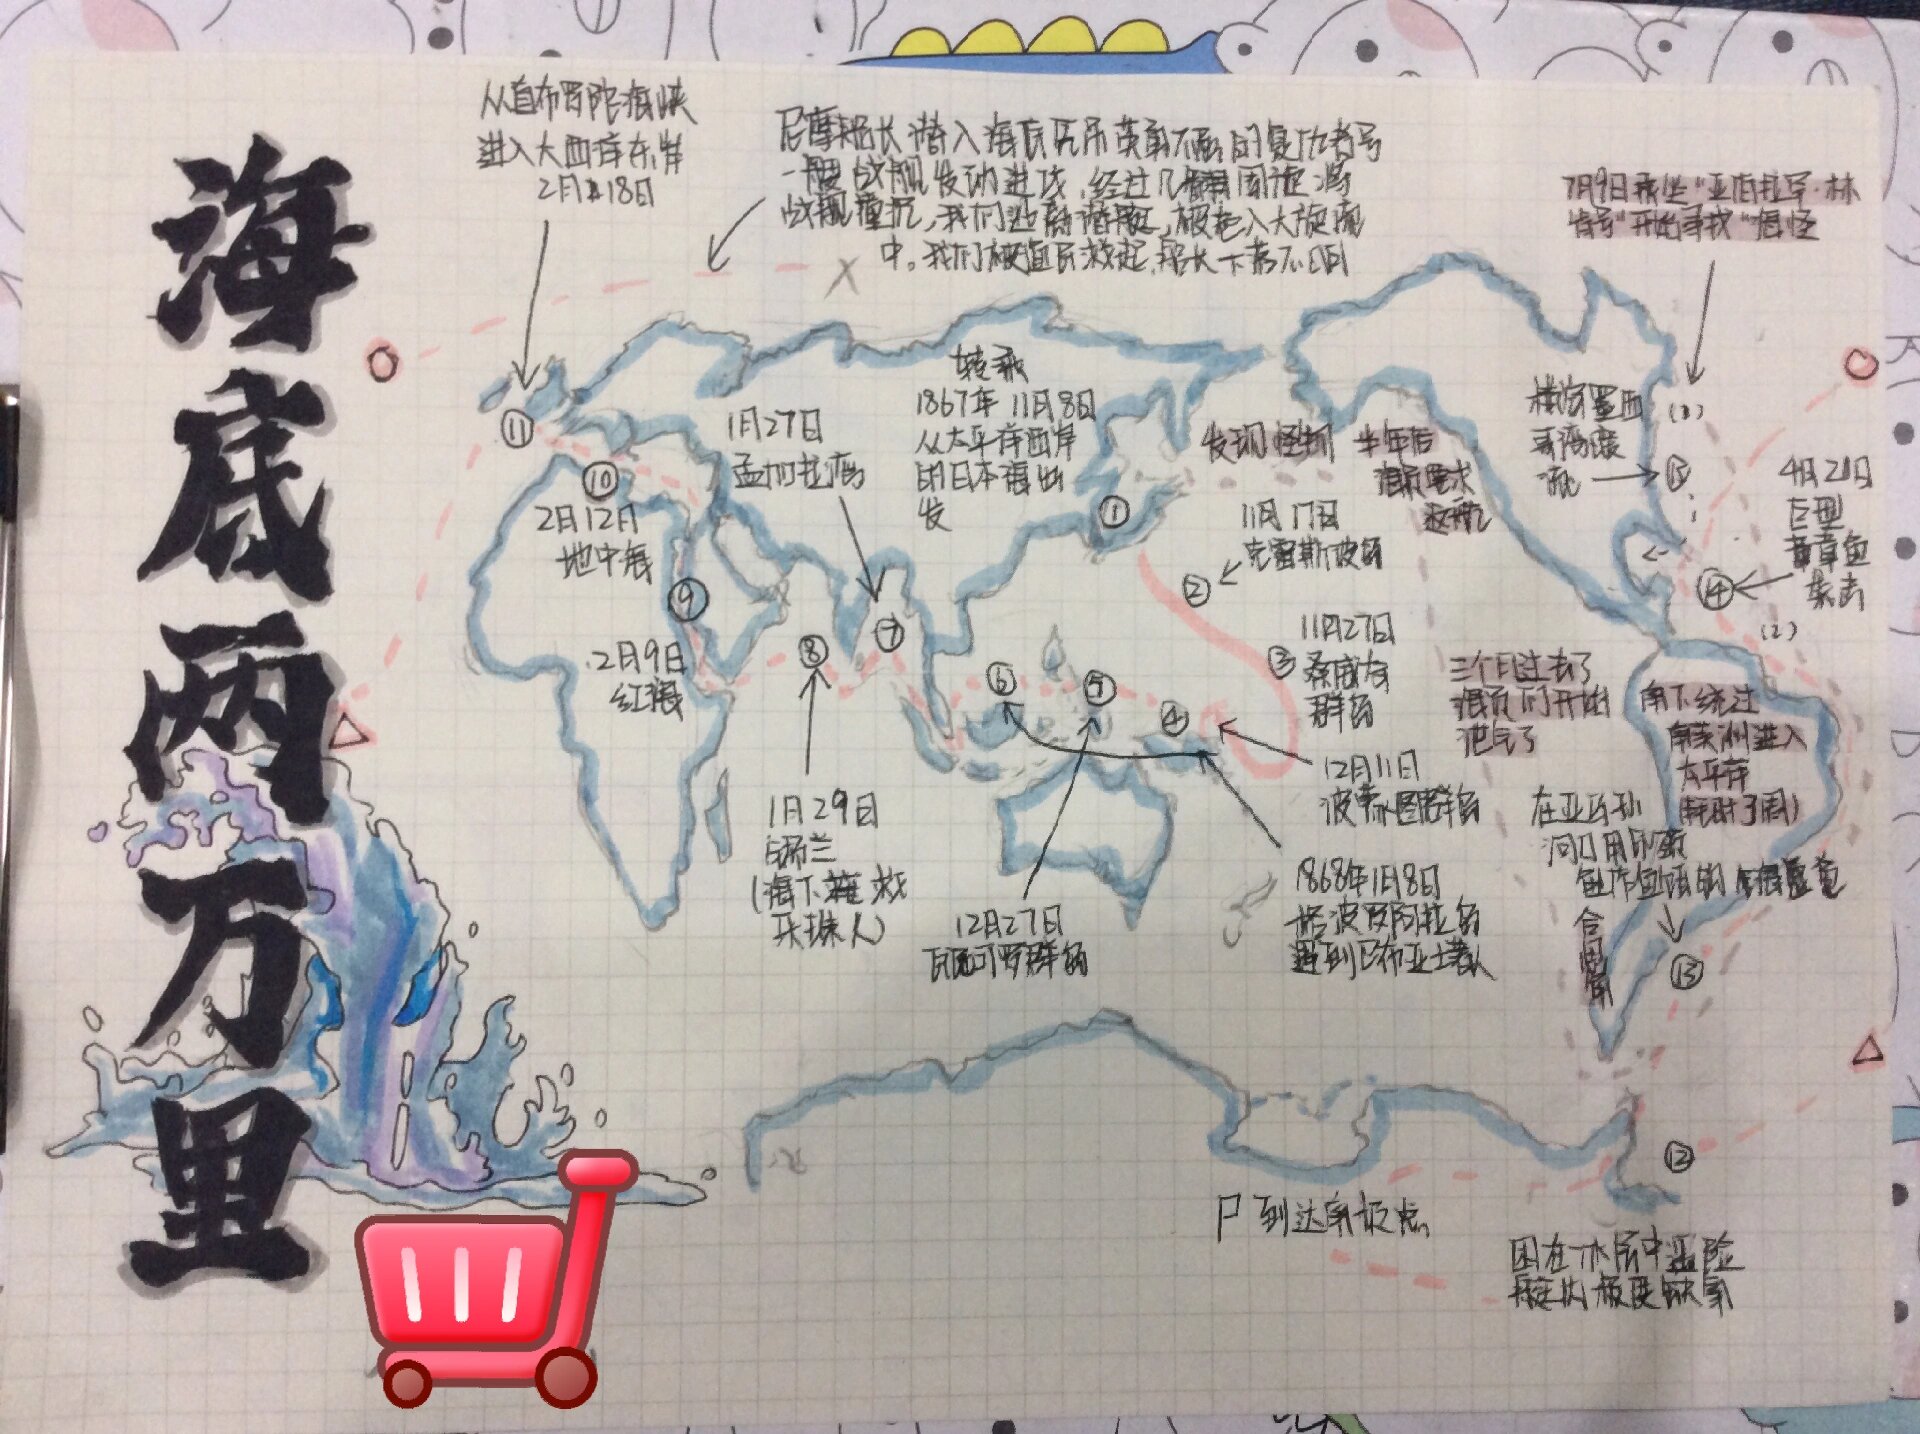 海底两万里
从直布罗陀海峡
进入大西洋东岸
2月18日
尼摩船长潜入海底凭吊英勇不屈的复仇者号
一艘战舰发动进攻,经过几番周旋,将
战舰撞沉,我们逃离潜艇,被卷入大旋流
中。我们被渔民救起,船长下落不明
7月9日我坐"亚伯拉罕·林
肯号"开始寻找"海怪
转乘
1867年11月8日
从太平洋西岸
的日本海出
发
1月27日
孟加拉湾
发现怪物
半年后
海员要求
返航
横渡墨西
哥湾暖
流
4月21日
巨型
章鱼
袭击
(1)
(2)
11月17日
克雷斯波岛
11月27日
桑威奇
群岛
三个月过去了
海员们开始
泄气了
南下绕过
南美洲进入
太平洋
(耗时3周)
2月12日
地中海
2月9日
红海
1月29日
锡兰
(海下
救
采珠人)
12月27日
瓦尼可罗群岛
12月11日
波莫图群岛
1868年1月8日
格波罗阿拉岛
遇到巴布亚土著人
在亚马孙
河口用印
鱼作鱼饵钓
合恩角
到达南极点
困在冰层中遇险
艇内极度缺氧
①
②
③
④
⑤
⑥
⑦
⑧
⑨
⑩
⑪
⑫
⑬
⑭
⑮